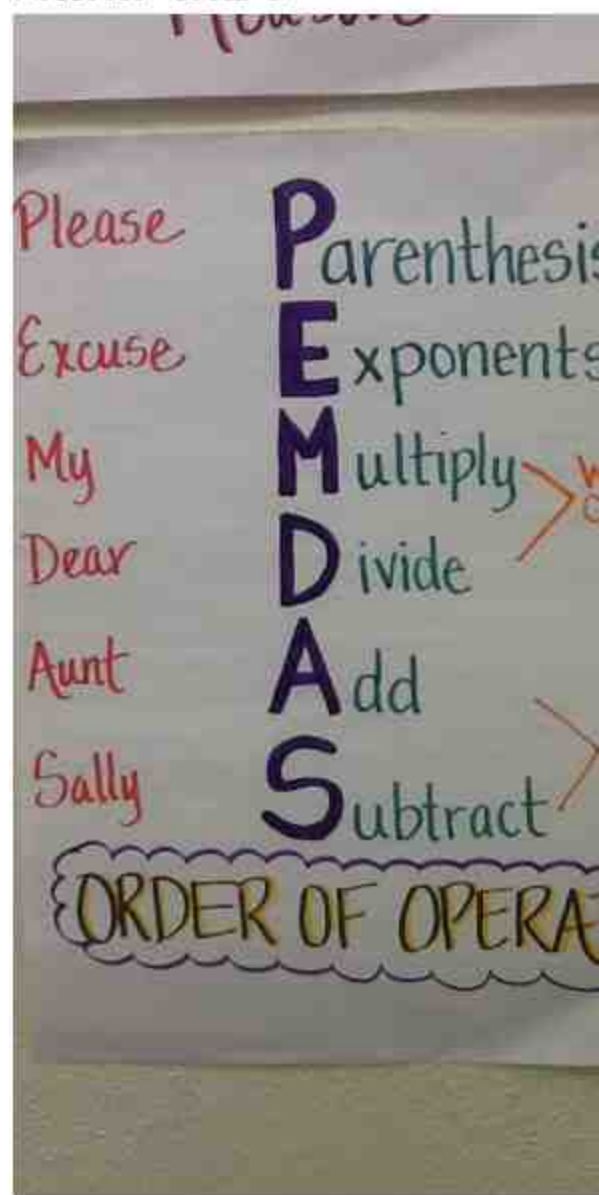 Please Parenthesis
Excuse Exponents
My Multiply
Dear Divide
Aunt Add
Sally Subtract
ORDER OF OPERA